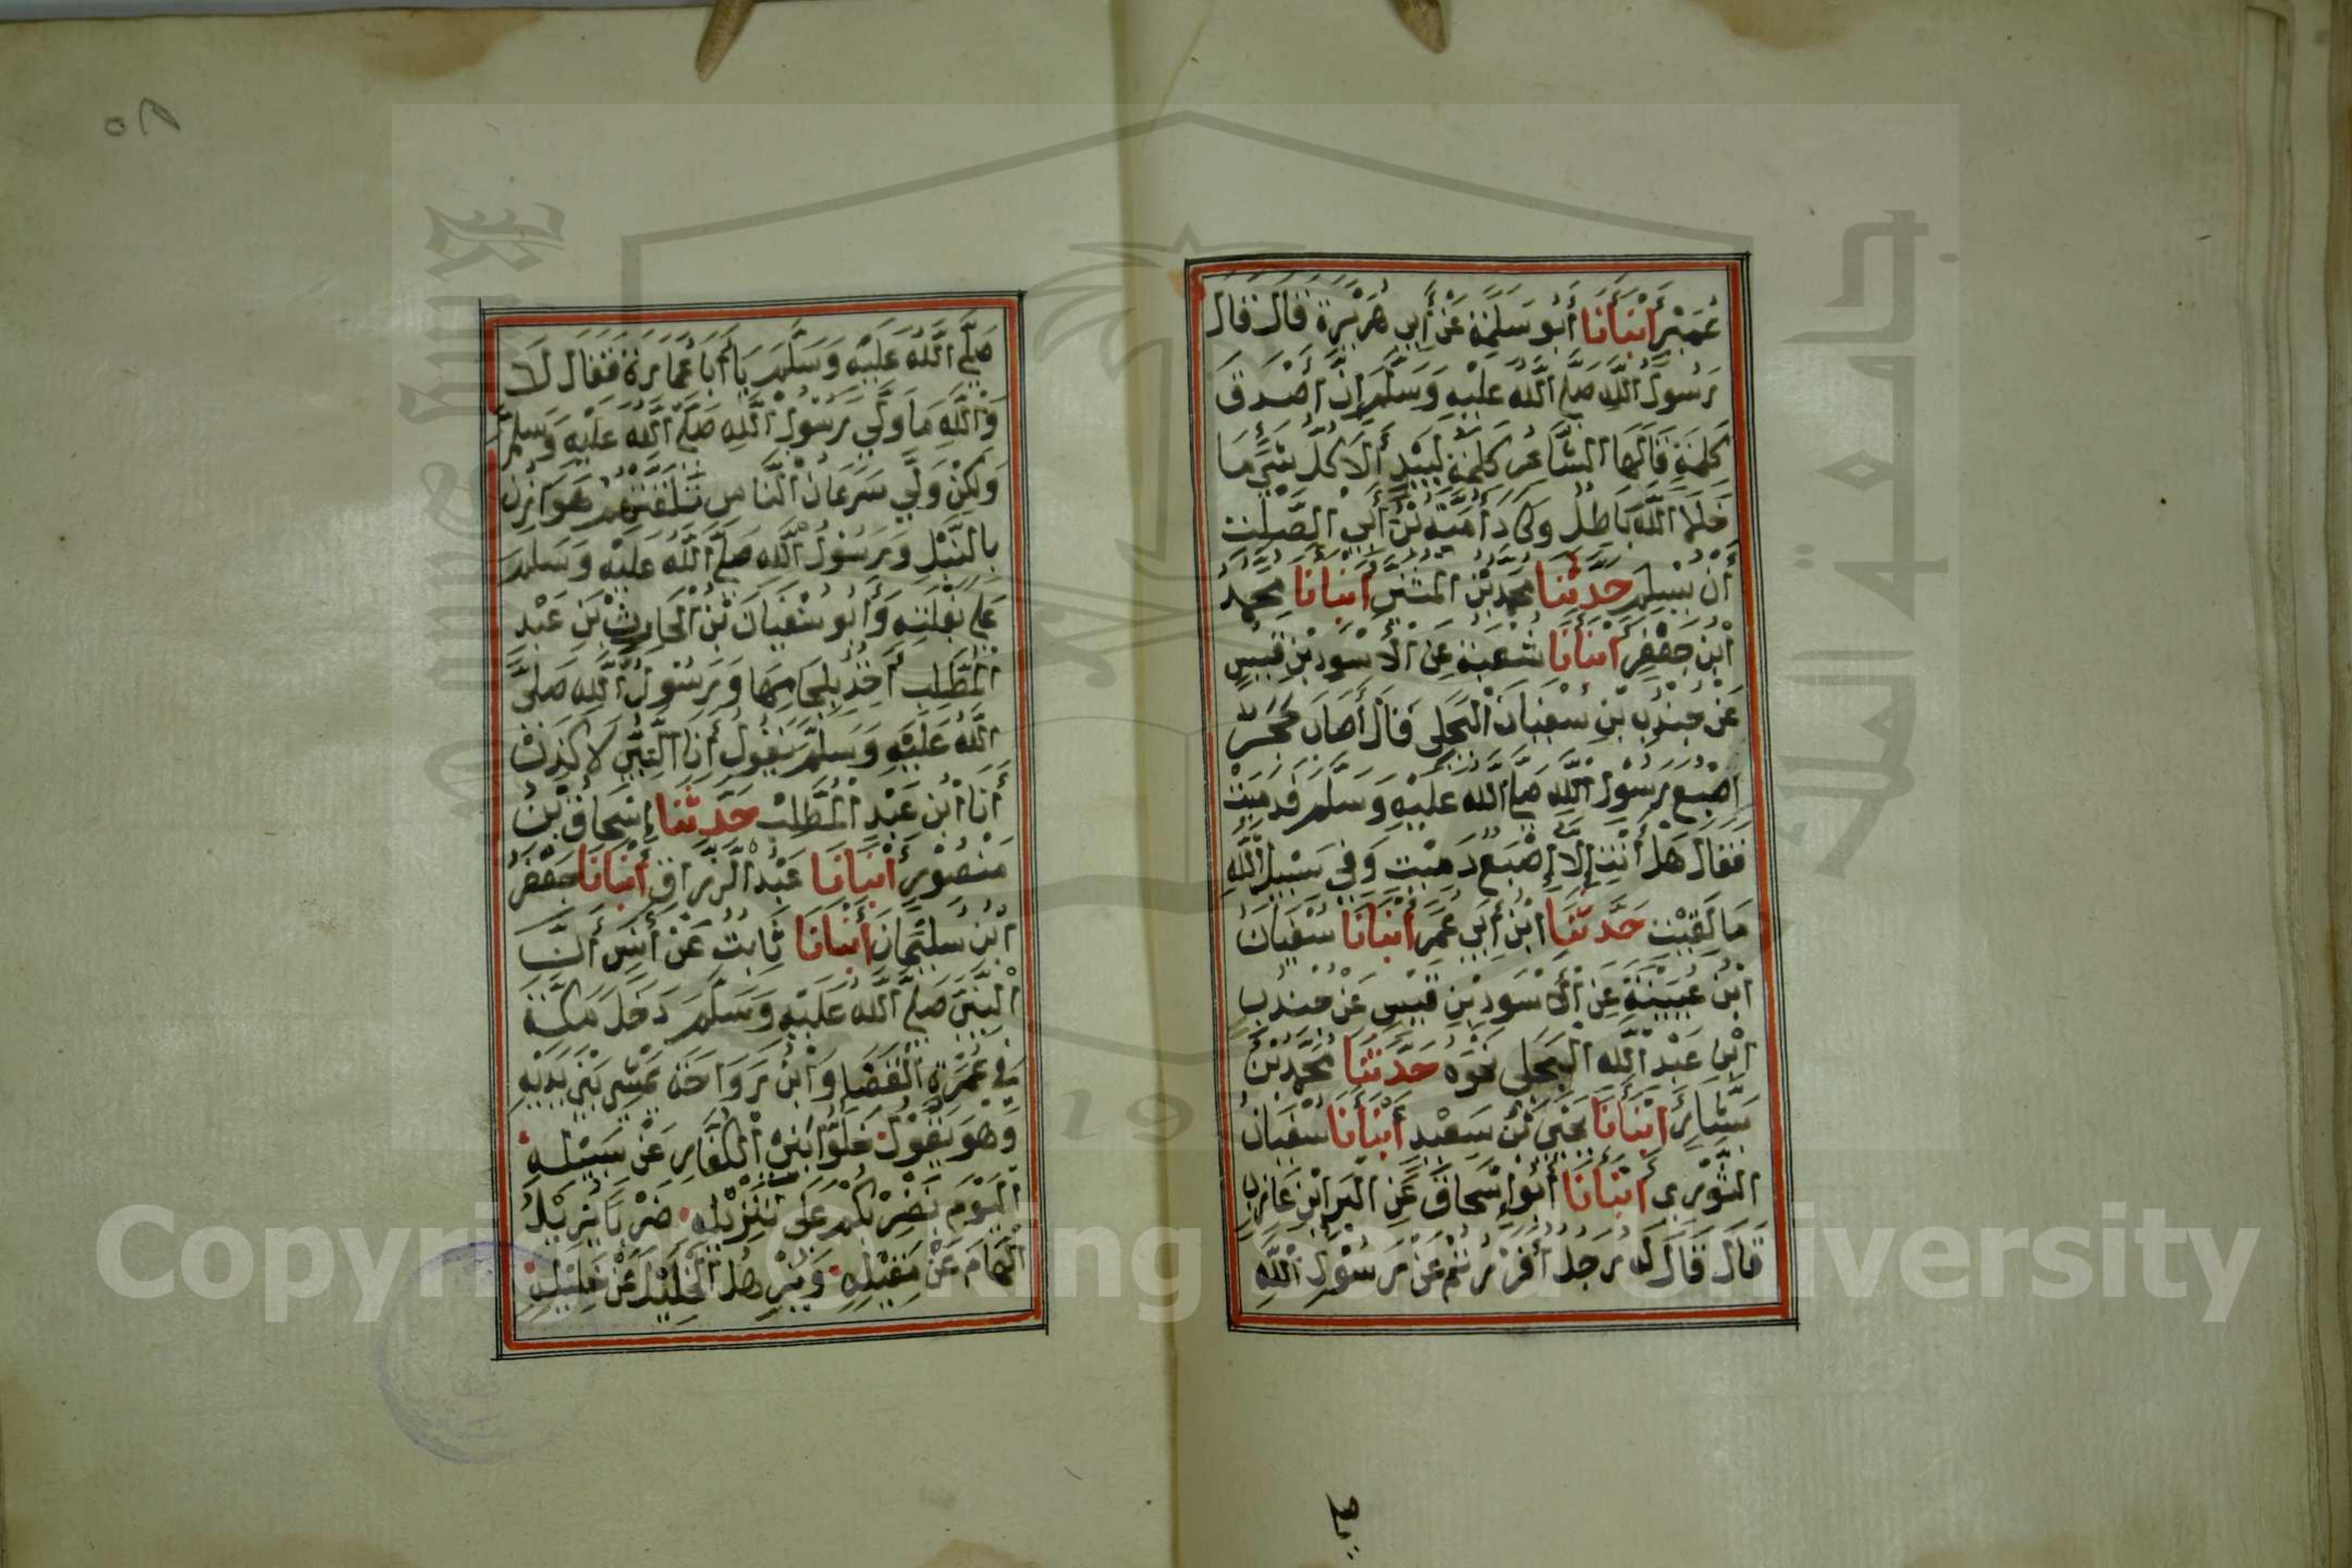 عُمَيْرٍ أَنْبَأَنَا أَبُو سَلَمَةَ عَنْ أَبِي هُرَيْرَةَ قَالَ قَالَ
رَسُولُ اللَّهِ صَلَّى اللَّهُ عَلَيْهِ وَسَلَّمَ إِنَّ أَصْدَقَ
كَلِمَةٍ قَالَهَا الشَّاعِرُ كَلِمَةُ لَبِيْدٍ أَلَا كُلُّ شَيْءٍ مَا
خَلَا اللَّهَ بَاطِلُ وَكَادَ أُمَيَّةُ بْنُ أَبِي الصَّلْتِ
أَنْ يُسْلِمَ حَدَّثَنَا مُحَمَّدُ بْنُ الْمُثَنَّى أَنْبَأَنَا مُحَمَّدُ
ابْنُ جَعْفَرٍ أَنْبَأَنَا شُعْبَةُ عَنِ الْأَسْوَدِ بْنِ قَيْسٍ
عَنْ جُنْدُبِ بْنِ سُفْيَانَ الْبَجَلِي قَالَ أَصَابَ حَجَرٌ
إِصْبَعَ رَسُولِ اللَّهِ صَلَّى اللَّهُ عَلَيْهِ وَسَلَّمَ فَدَمِيَتْ
فَقَالَ هَلْ أَنْتِ إِلَّا إِصْبَعٌ دَمِيْتِ وَفِي سَبِيْلِ اللَّهِ
مَا لَقِيْتِ حَدَّثَنَا ابْنُ أَبِي عُمَرَ أَنْبَأَنَا سُفْيَانُ
ابْنُ عُيَيْنَةَ عَنِ الْأَسْوَدِ بْنِ قَيْسٍ عَنْ جُنْدُبِ
ابْنِ عَبْدِ اللَّهِ الْبَجَلِي نَحْوَهُ حَدَّثَنَا مُحَمَّدُ بْنُ
بَشَّارٍ أَنْبَأَنَا يَحْيَى بْنُ سَعِيْدٍ أَنْبَأَنَا سُفْيَانُ
الثَّوْرِي أَنْبَأَنَا أَبُو إِسْحَاقَ عَنِ الْبَرَا بْنِ عَازِبٍ
قَالَ قَالَ لَهُ رَجُلٌ أَفَرَرْتُمْ عَنْ رَسُوْلِ اللَّهِ
صَلَّى اللَّهُ عَلَيْهِ وَسَلَّمَ يَا أَبَا عُمَارَةَ فَقَالَ لَا
وَاللَّهِ مَا وَلَّى رَسُوْلُ اللَّهِ صَلَّى اللَّهُ عَلَيْهِ وَسَلَّمَ
وَلَكِنْ وَلَّى سَرَعَانُ النَّاسِ تَلَقَّتْهُمْ هَوَازِنُ
بِالنَّبْلِ وَرَسُوْلُ اللَّهِ صَلَّى اللَّهُ عَلَيْهِ وَسَلَّمَ
عَلَى بَغْلَتِهِ وَأَبُو سُفْيَانَ بْنُ الْحَارِثِ بْنِ عَبْدِ
الْمُطَّلِبِ آخِذٌ بِلِجَامِهَا وَرَسُوْلُ اللَّهِ صَلَّى
اللَّهُ عَلَيْهِ وَسَلَّمَ يَقُوْلُ أَنَا النَّبِيُّ لَا كَذِبْ
أَنَا ابْنُ عَبْدِ الْمُطَّلِبْ حَدَّثَنَا إِسْحَاقُ بْنُ
مَنْصُوْرٍ أَنْبَأَنَا عَبْدُ الرَّزَّاقِ أَنْبَأَنَا جَعْفَرُ
ابْنُ سُلَيْمَانَ أَنْبَأَنَا ثَابِتٌ عَنْ أَنَسٍ أَنَّ
النَّبِيَّ صَلَّى اللَّهُ عَلَيْهِ وَسَلَّمَ دَخَلَ مَكَّةَ
فِي عُمْرَةِ الْقَضَا وَابْنُ رَوَاحَةَ يَمْشِي بَيْنَ يَدَيْهِ
وَهُوَ يَقُوْلُ خَلُّوْا بَنِي الْكُفَّارِ عَنْ سَبِيْلِهِ
الْيَوْمَ نَضْرِبْكُمْ عَلَى تَنْزِيْلِهِ ضَرْبًا يُزِيْلُ
الْهَامَ عَنْ مَقِيْلِهِ وَيُذْهِلُ الْخَلِيْلَ عَنْ خَلِيْلِهِ
Copyright © King Saud University